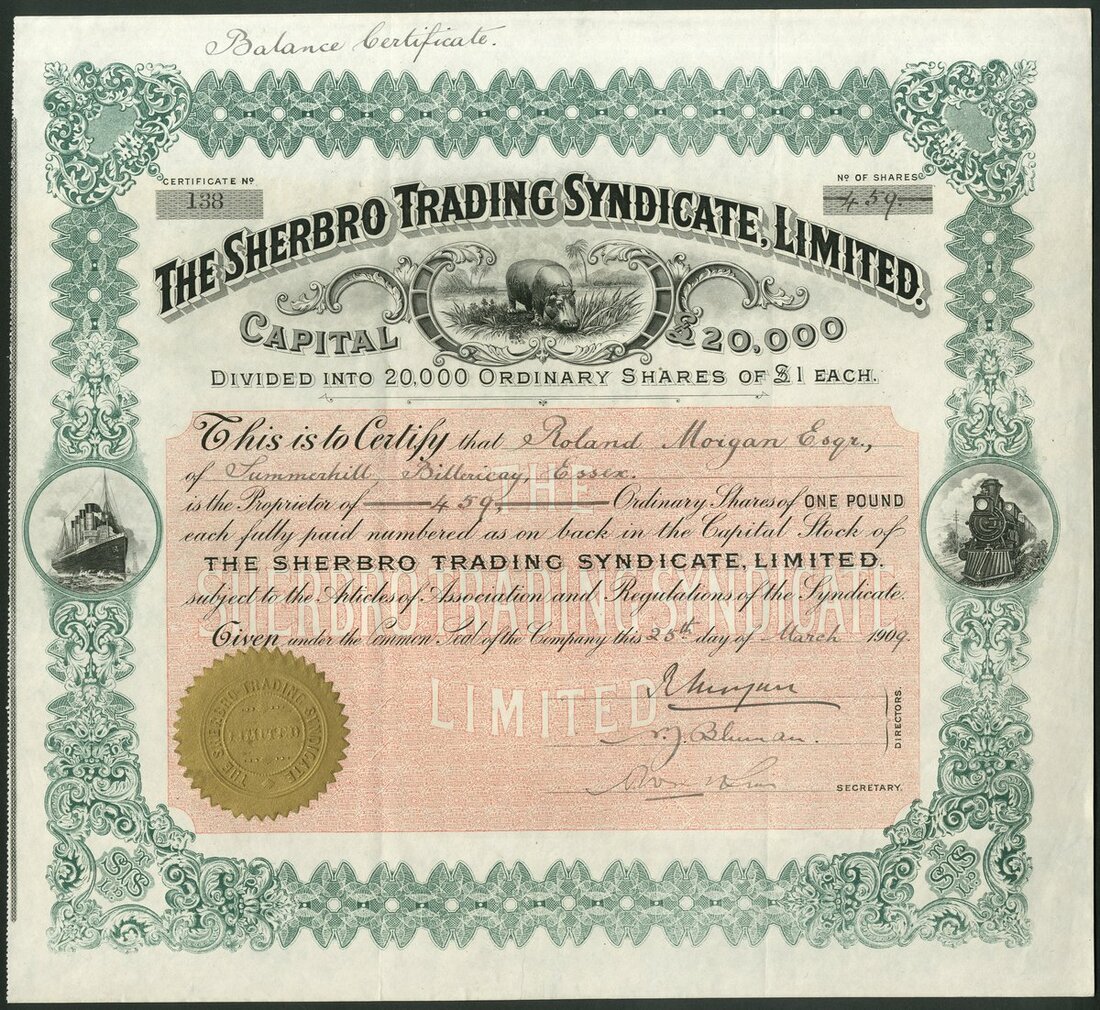 Balance Certificate.
CERTIFICATE Nº
138
Nº OF SHARES
459.
THE SHERBRO TRADING SYNDICATE, LIMITED.
CAPITAL £20,000
DIVIDED INTO 20,000 ORDINARY SHARES OF £1 EACH.
This is to Certify that Roland Morgan Esqr.,
of Summerhill, Billericay, Essex.
is the Proprietor of 459, Ordinary Shares of ONE POUND
each fully paid numbered as on back in the Capital Stock of
THE SHERBRO TRADING SYNDICATE, LIMITED.
subject to the Articles of Association and Regulations of the Syndicate.
Given under the Common Seal of the Company this 25th day of March 1909.
THE
SHERBRO TRADING SYNDICATE
LIMITED
R Morgan
DIRECTORS.
SECRETARY.
THE SHERBRO TRADING SYNDICATE
LIMITED
STS
LD
STS
LD